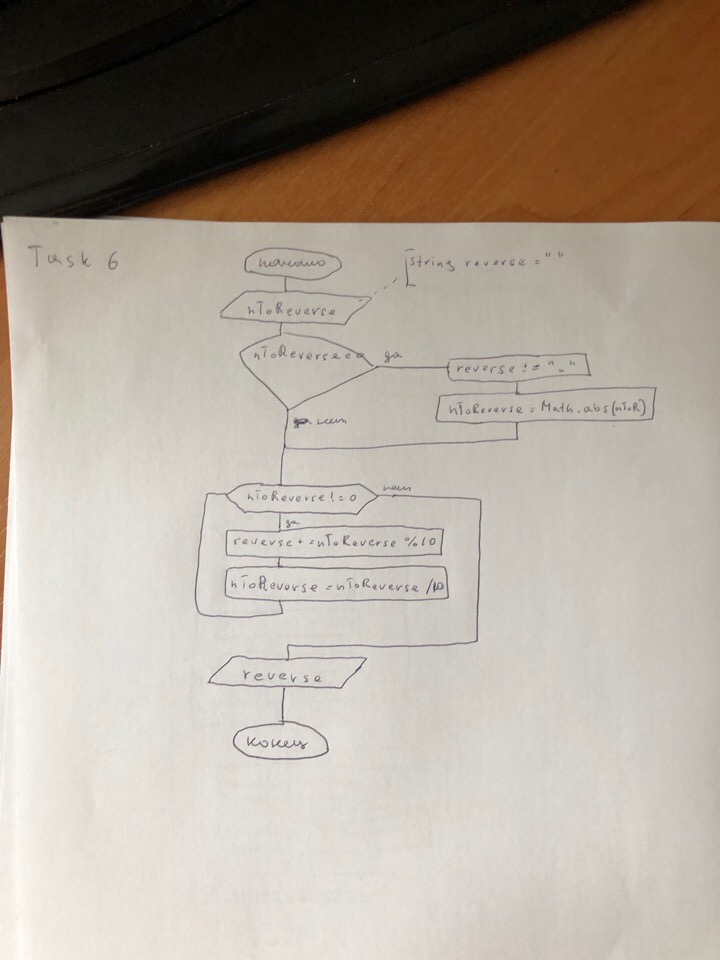 Task 6
начало
[String reverse = " "
nToReverse
nToReverse<0
да
reverse += "-"
nToReverse = Math.abs(nToR)
нет
nToReverse != 0
нет
да
reverse += nToReverse % 10
nToReverse = nToReverse / 10
reverse
конец